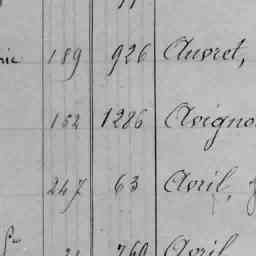 189 926 Auvret,
152 1286 Avigno
247 63 Avril,
760 Avril